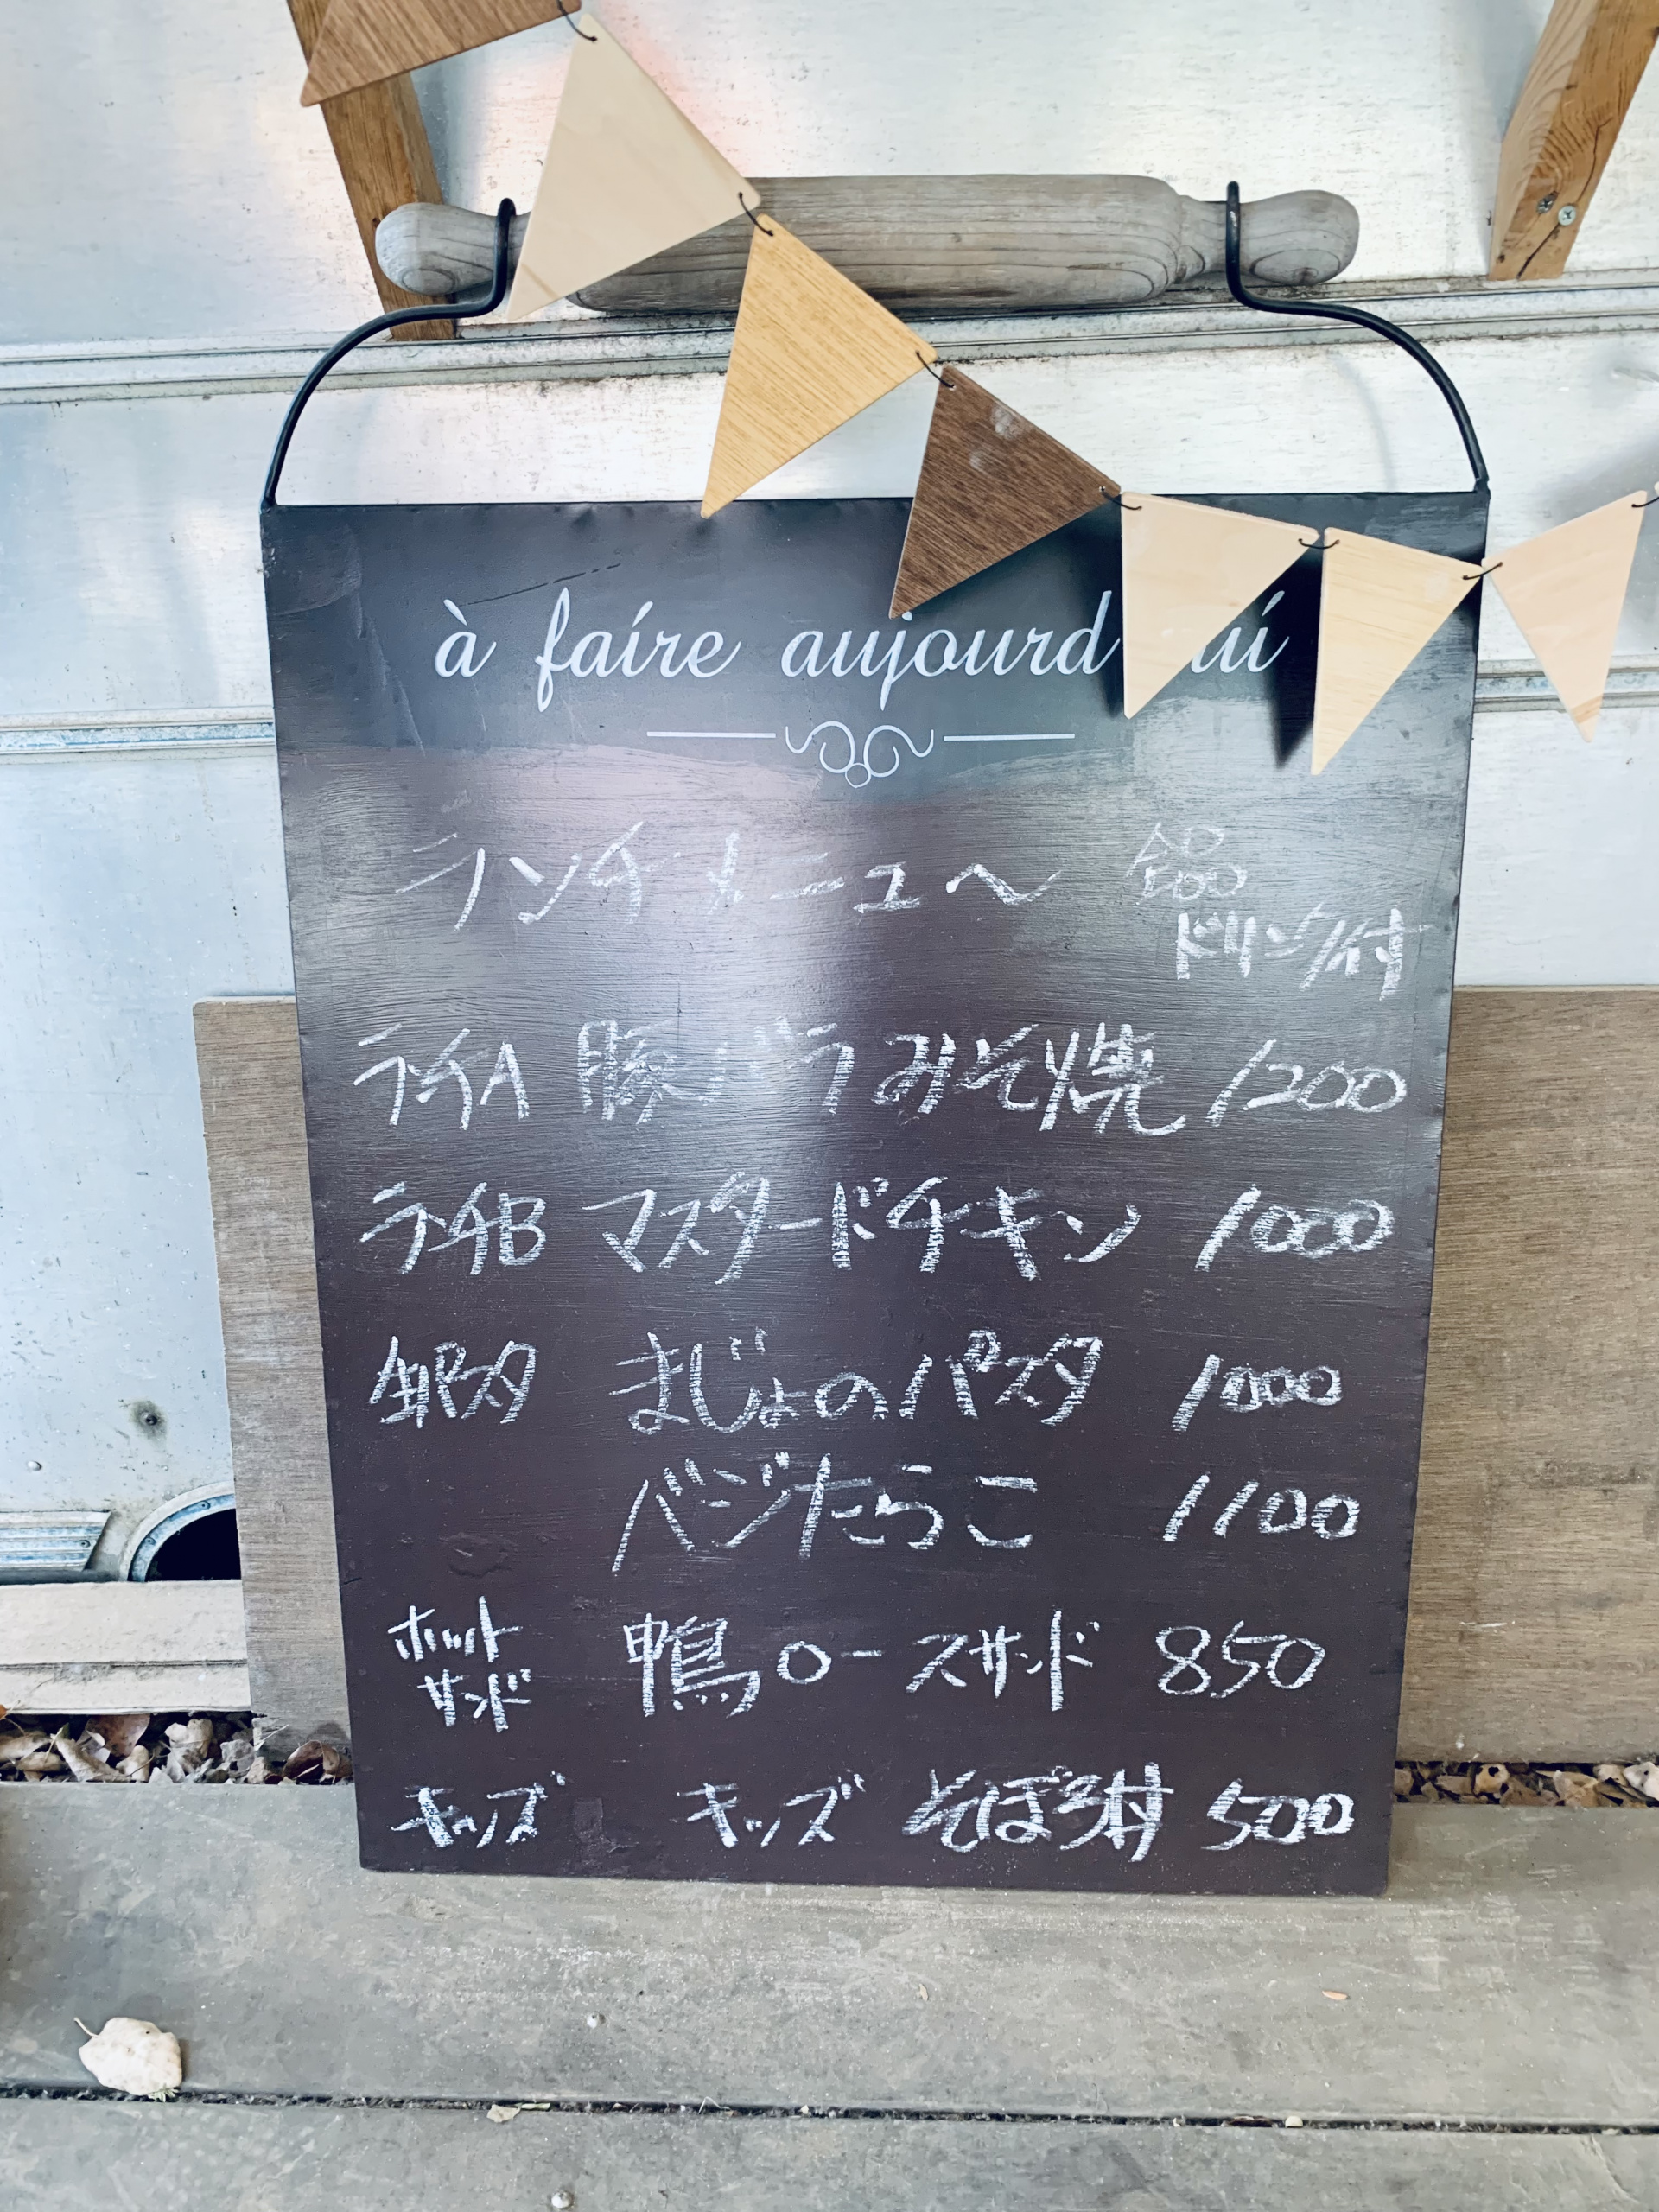 à faire aujourd'hui
ランチメニュー 全品
ドリンク付
ラチA 豚バラみそ焼 1200
ラチB マスタードチキン 1000
生パスタ まじょのパスタ 1000
ベジたらこ 1100
ホット
サンド 鴨ロースサンド 850
キッズ キッズ そぼろ丼 500